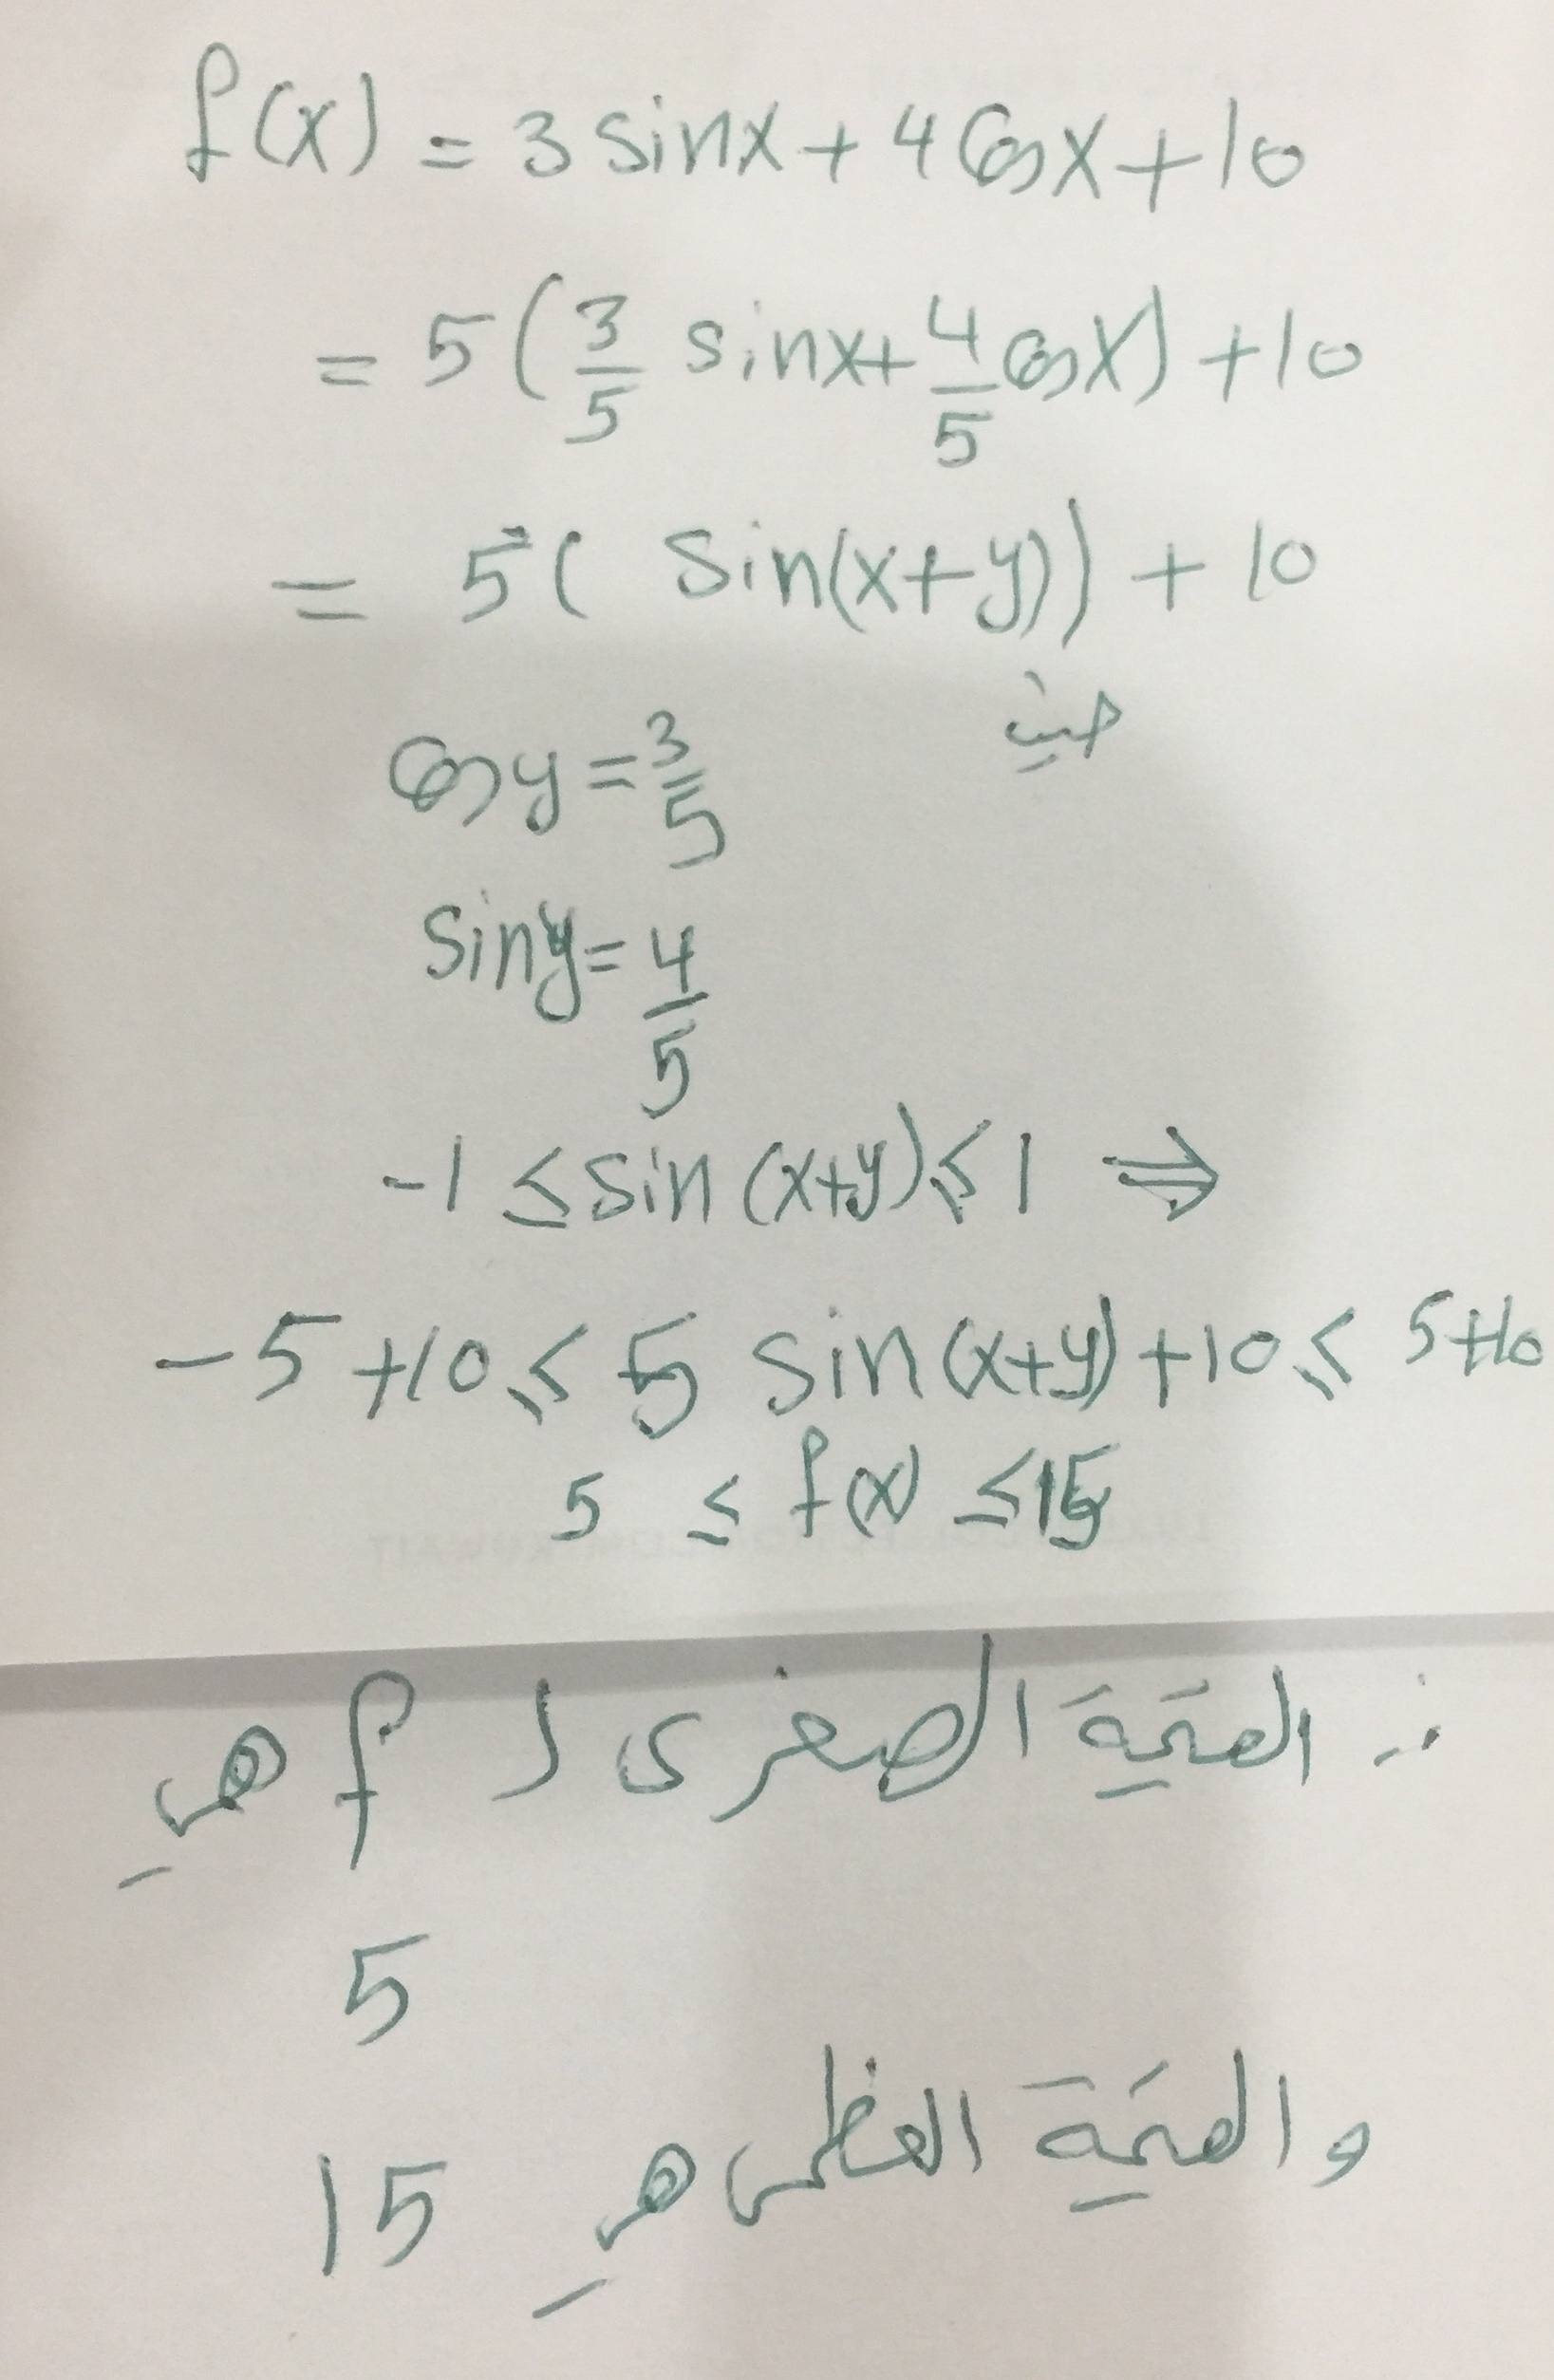 f(x) = 3 sinx + 4 cosx + 10
= 5 ( 3/5 sinx + 4/5 cosx ) + 10
= 5 ( sin(x+y) ) + 10
حيث
cos y = 3/5
sin y = 4/5
-1 ≤ sin (x+y) ≤ 1 ⇒
-5 + 10 ≤ 5 sin (x+y) + 10 ≤ 5+10
5 ≤ f(x) ≤ 15
∴ القيمة الصغرى ل f هي
5
والقيمة العظمى هي 15